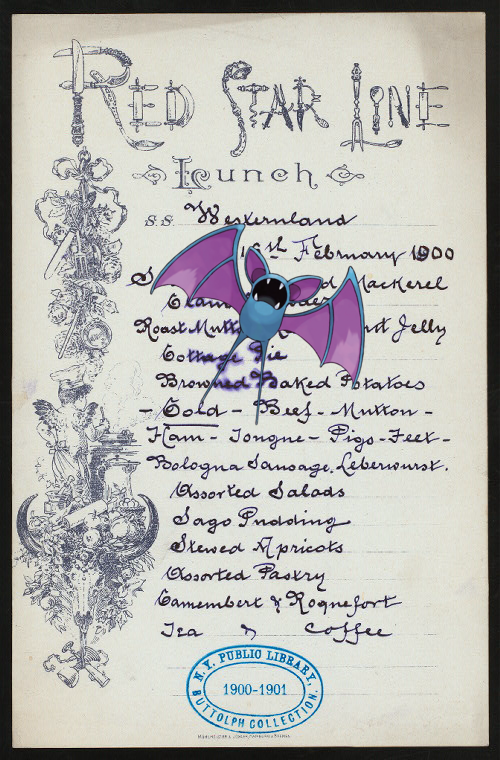 RED STAR LINE
Lunch
S.S. Westernland
February 1900
Mackerel
Roast Jelly
Cottage Pie
Browned Baked Potatoes
- Cold - Beef - Mutton -
Ham - Tongue - Pigs - Feet -
Bologna Sausage. Leberwurst.
Assorted Salads
Sago Pudding
Stewed Apricots
Assorted Pastry
Camembert & Roquefort
Tea & Coffee
N.Y. PUBLIC LIBRARY,
1900-1901
BUTTOLPH COLLECTION.